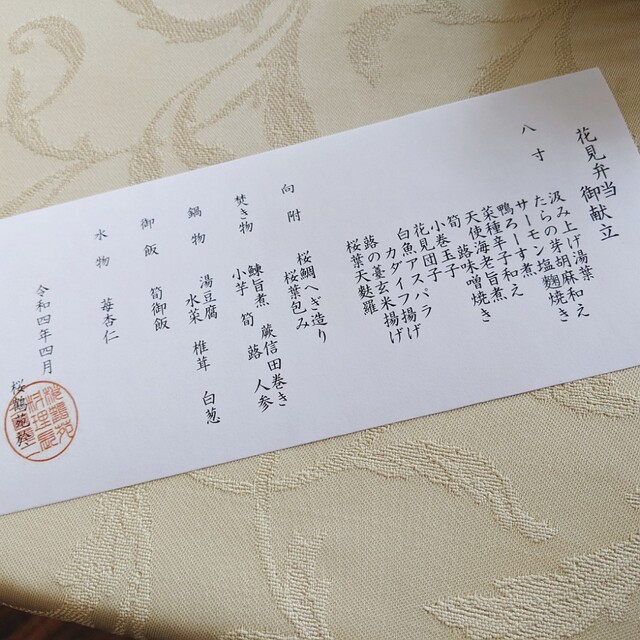 花見弁当 御献立
八寸
汲み上げ湯葉
たらの芽胡麻和え
サーモン塩麹焼き
鴨ろーす煮
菜種辛子和え
天使海老旨煮
筍 蕗味噌焼き
小巻玉子
花見団子
白魚アスパラ
カダイフ揚げ
蕗の薹玄米揚げ
桜葉天麩羅
向附
桜鯛へぎ造り
桜葉包み
焚き物
鰊旨煮 蕨信田巻き
小芋 筍 蕗 人参
鍋物
湯豆腐
水菜 椎茸 白葱
御飯
筍御飯
水物
苺杏仁
令和四年四月
桜鶴苑